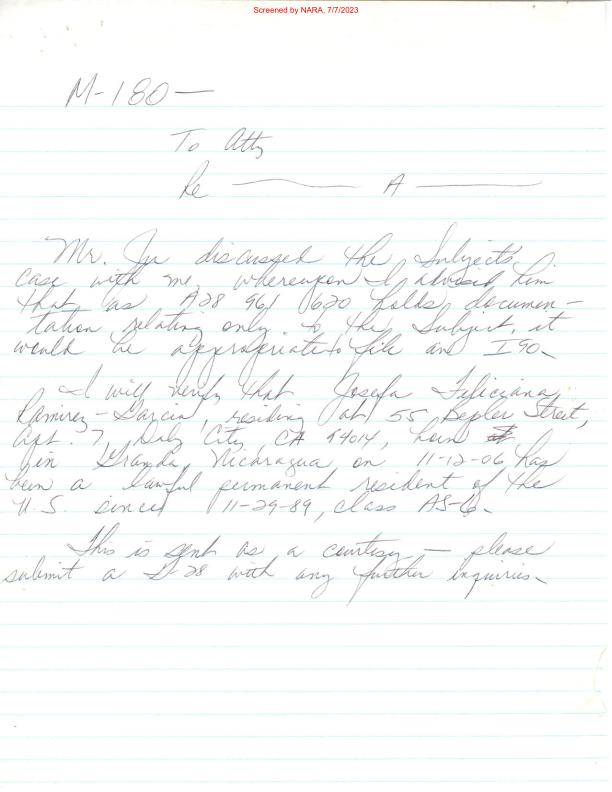 Screened by NARA, 7/7/2023
M-180—
To Atty
Re ——— A ———
Mr. Ju discussed the Subject's
case with me, whereupon I advised him
that as A28 961 620 holds documen-
tation relating only to the Subject, it
would be appropriate to file an I90.
I will verify that Josefa Feliciana
Ramirez-Garcia, residing at 55 Bepler Street,
Apt. 7, Daly City, CA 94014, born
in Granda, Nicaragua on 11-12-06 has
been a lawful permanent resident of the
U.S. since 11-29-89, class AS-6.
This is sent as a courtesy — please
submit a G-28 with any further inquiries.